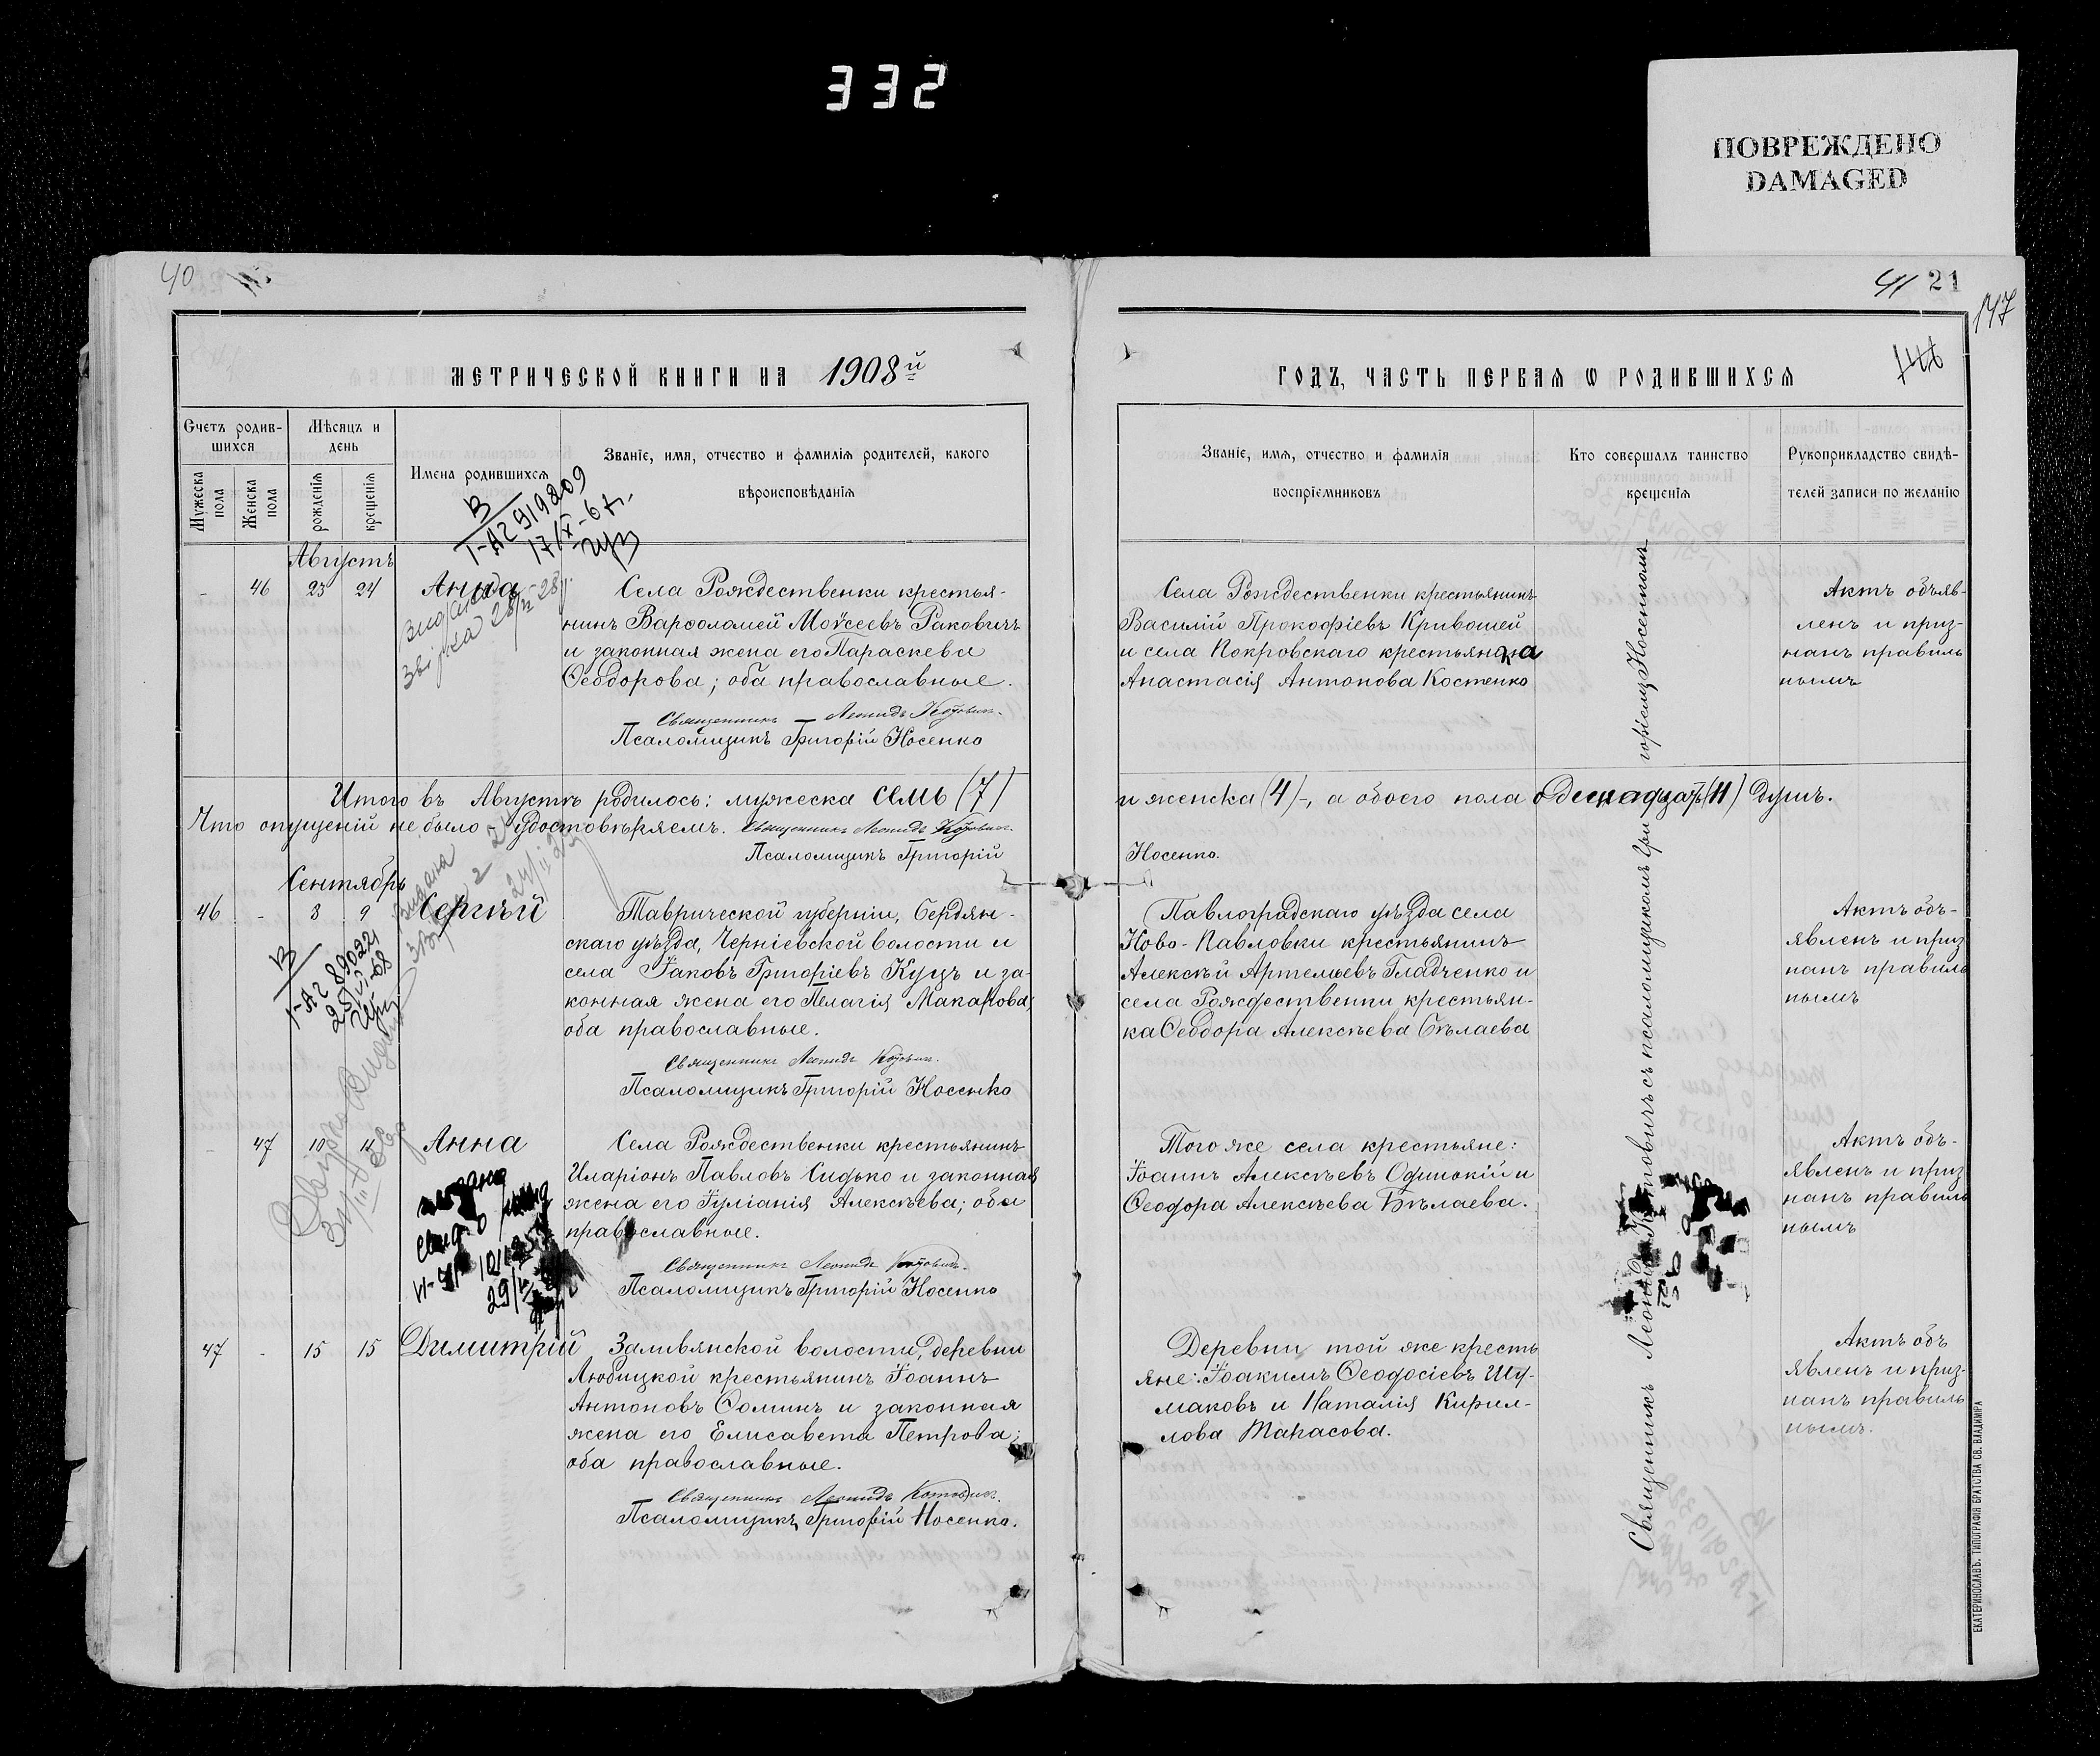 332
ПОВРЕЖДЕНО
DAMAGED
40
41 21
147
МЕТРИЧЕСКОЙ КНИГИ НА 1908й
ГОДЪ, ЧАСТЬ ПЕРВАЯ Ѡ РОДИВШИХСЯ
Счетъ родив-
шихся
Мужеска пола
Женска пола
Мѣсяцъ и
день
рожденія
крещенія
Имена родившихся
Званіе, имя, отчество и фамилія родителей, какого
вѣроисповѣданія
Званіе, имя, отчество и фамилія
воспріемниковъ
Кто совершалъ таинство
крещенія
Рукоприкладство свидѣ-
телей записи по желанію
В
I-АГ 919209
17/X-67.
Августъ
- 46 23 24 Анна
Села Рождественки крестья-
нинъ Варѳоломей Моѵсеевъ Ракович
и законная жена его Параскева
Ѳеодорова; оба православные.
Священникъ Леонидъ Котовичъ.
Псаломщикъ Григорій Носенко
Села Рождественки крестьянинъ
Василій Прокофіевъ Кривошей
и села Покровскаго крестьянка
Анастасія Антонова Костенко
Актъ объяв-
ленъ и приз-
нанъ правиль
нымъ
Итого въ Августѣ родилось: мужеска семь (7)
и женска (4)-, а обоего пола одиннадцать (11) душъ.
Что опущеній не было - удостовѣряемъ. Священникъ Леонидъ Котовичъ.
Псаломщикъ Григорій
Носенко.
Сентябрь
46 - 8 9 Сергѣй
В
I-АГ 890221
Таврической губерніи, Бердян-
скаго уѣзда, Черніевской волости и
села Іаковъ Григоріевъ Куцъ и за-
конная жена его Пелагія Макарова;
оба православные.
Священникъ Леонидъ Котовичъ.
Псаломщикъ Григорій Носенко
Павлоградскаго уѣзда села
Ново-Павловки крестьянинъ
Алексѣй Артемьевъ Гладченко и
села Рождественки крестьян-
ка Ѳеодора Алексѣева Бѣлаева
Актъ объ-
явленъ и приз
нанъ правиль
нымъ
- 47 10 14 Анна
Села Рождественки крестьянинъ
Иларіонъ Павловъ Сидько и законная
жена его Іуліанія Алексѣева; оба
православные.
Священникъ Леонидъ Котовичъ.
Псаломщикъ Григорій Носенко
Того же села крестьяне:
Іоаннъ Алексѣевъ Одинокій и
Ѳеодора Алексѣева Бѣлаева.
Актъ объ-
явленъ и приз
нанъ правиль
нымъ
47 - 15 15 Димитрій
Заливянской волости, деревни
Любицкой крестьянинъ Іоаннъ
Антоновъ Ѳоминъ и законная
жена его Елисавета Петрова;
оба православные.
Священникъ Леонидъ Котовичъ.
Псаломщикъ Григорій Носенко.
Деревни той же кресть
яне: Іоакимъ Ѳеодосіевъ Шу-
маковъ и Наталія Кирил-
лова Тарасова.
Актъ объ
явленъ и приз-
нанъ правиль
нымъ.
Священникъ Леонидъ Котовичъ съ псаломщикомъ Григоріемъ Носенкомъ
ЕКАТЕРИНОСЛАВЪ. ТИПОГРАФІЯ БРАТСТВА СВ. ВЛАДИМІРА